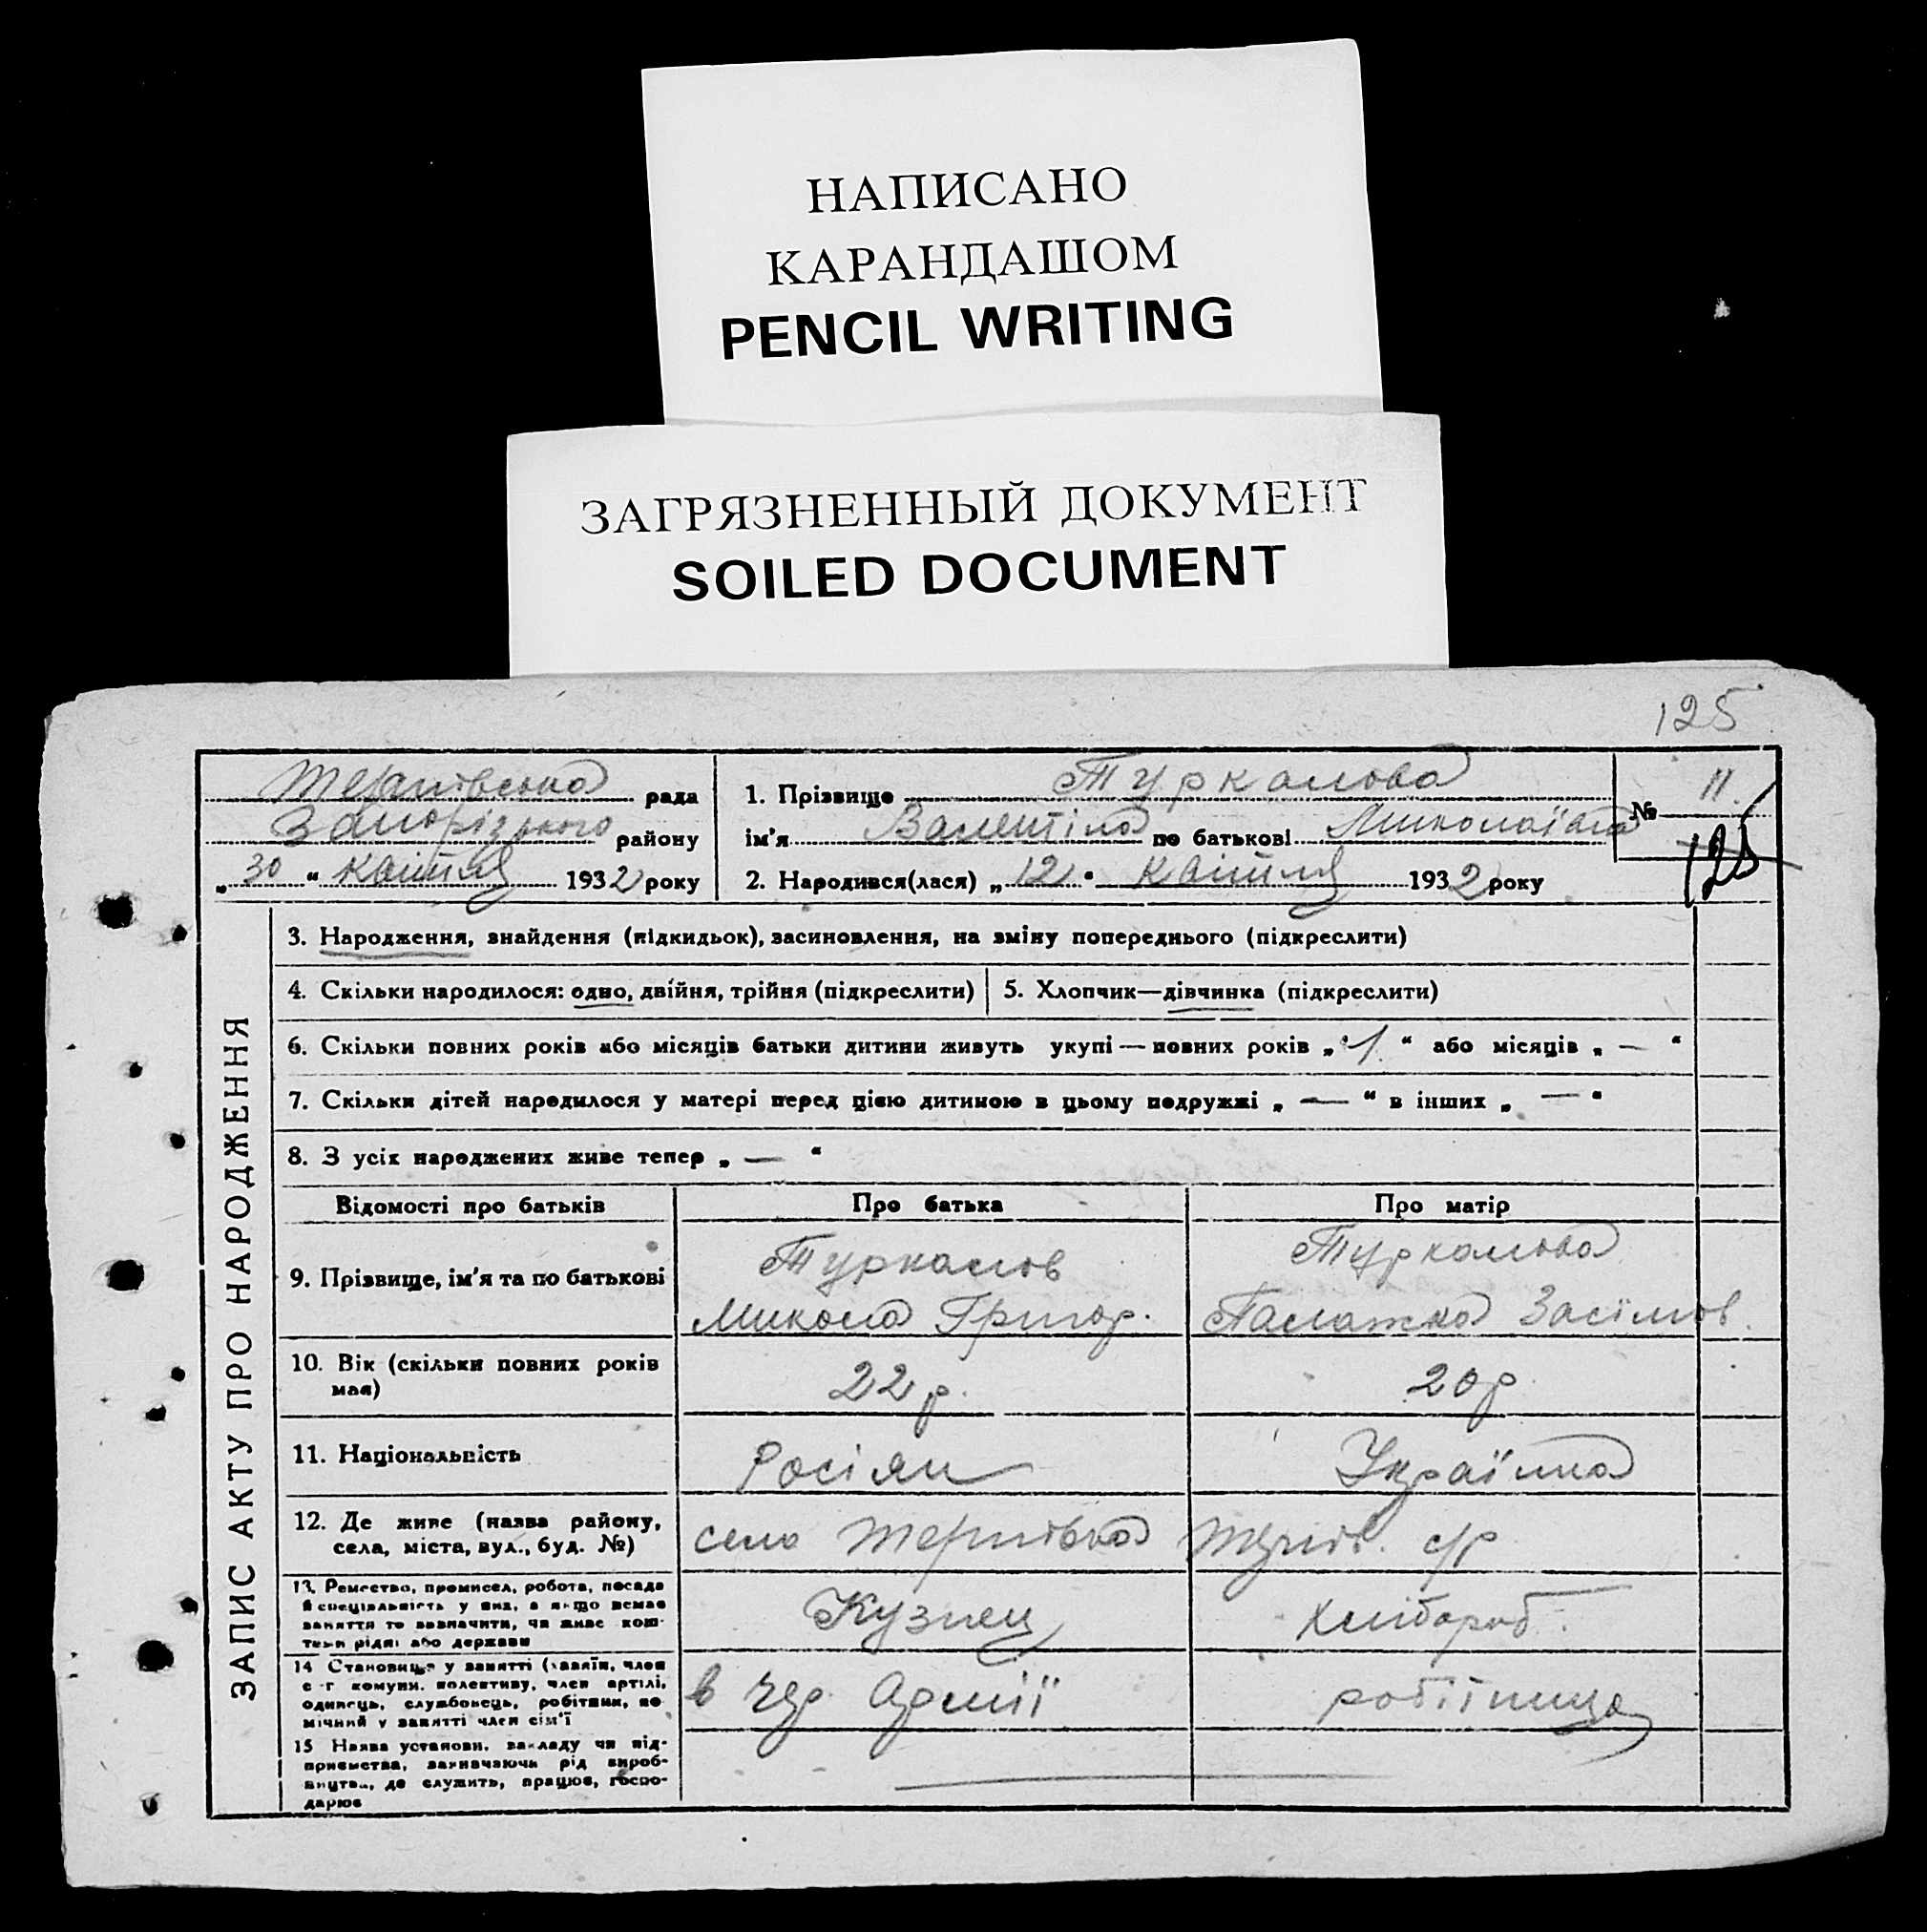 НАПИСАНО
КАРАНДАШОМ
PENCIL WRITING
ЗАГРЯЗНЕННЫЙ ДОКУМЕНТ
SOILED DOCUMENT
125
Тернівська рада
Запорізького району
„ 30 “ квітня 1932 року
1. Прізвище Туркалова
ім'я Валентіна по батькові Миколаївна
2. Народився(лася) „ 12 “ квітня 1932 року
№ 11.
125
ЗАПИС АКТУ ПРО НАРОДЖЕННЯ
3. Народження, знайдення (підкидьок), засиновлення, на зміну попереднього (підкреслити)
4. Скільки народилося: одно, двійня, трійня (підкреслити)
5. Хлопчик—дівчинка (підкреслити)
6. Скільки повних років або місяців батьки дитини живуть укупі — повних років „ 1 “ або місяців „ — “
7. Скільки дітей народилося у матері перед цією дитиною в цьому подружжі „ — “ в інших „ — “
8. З усіх народжених живе тепер „ — “
Відомості про батьків
Про батька
Про матір
9. Прізвище, ім'я та по батькові
Туркалов
Микола Григор.
Туркалова
Палажка Засімов.
10. Вік (скільки повних років
має)
22 р.
20 р
11. Національність
Росіян
Українка
12. Де живе (назва району,
села, міста, вул., буд. №)
село Тернівка
с/р
13. Ремество, промисел, робота, посада
й спеціяльність у них, а якщо немає
заняття то зазначити, чи живе кош-
тами рідні або держави
Кузнец
хлібороб.
14 Становище у занятті (хазяїн, член
с-г комуни, колективу, член артілі,
одинець, службовець, робітник, по-
мічний у занятті член сім'ї
в чер. Армії
робітниця
15 Назва установи, закладу чи під-
приємства, зазначаючи рід вироб-
ництва, де служить, працює, госпо-
дарює